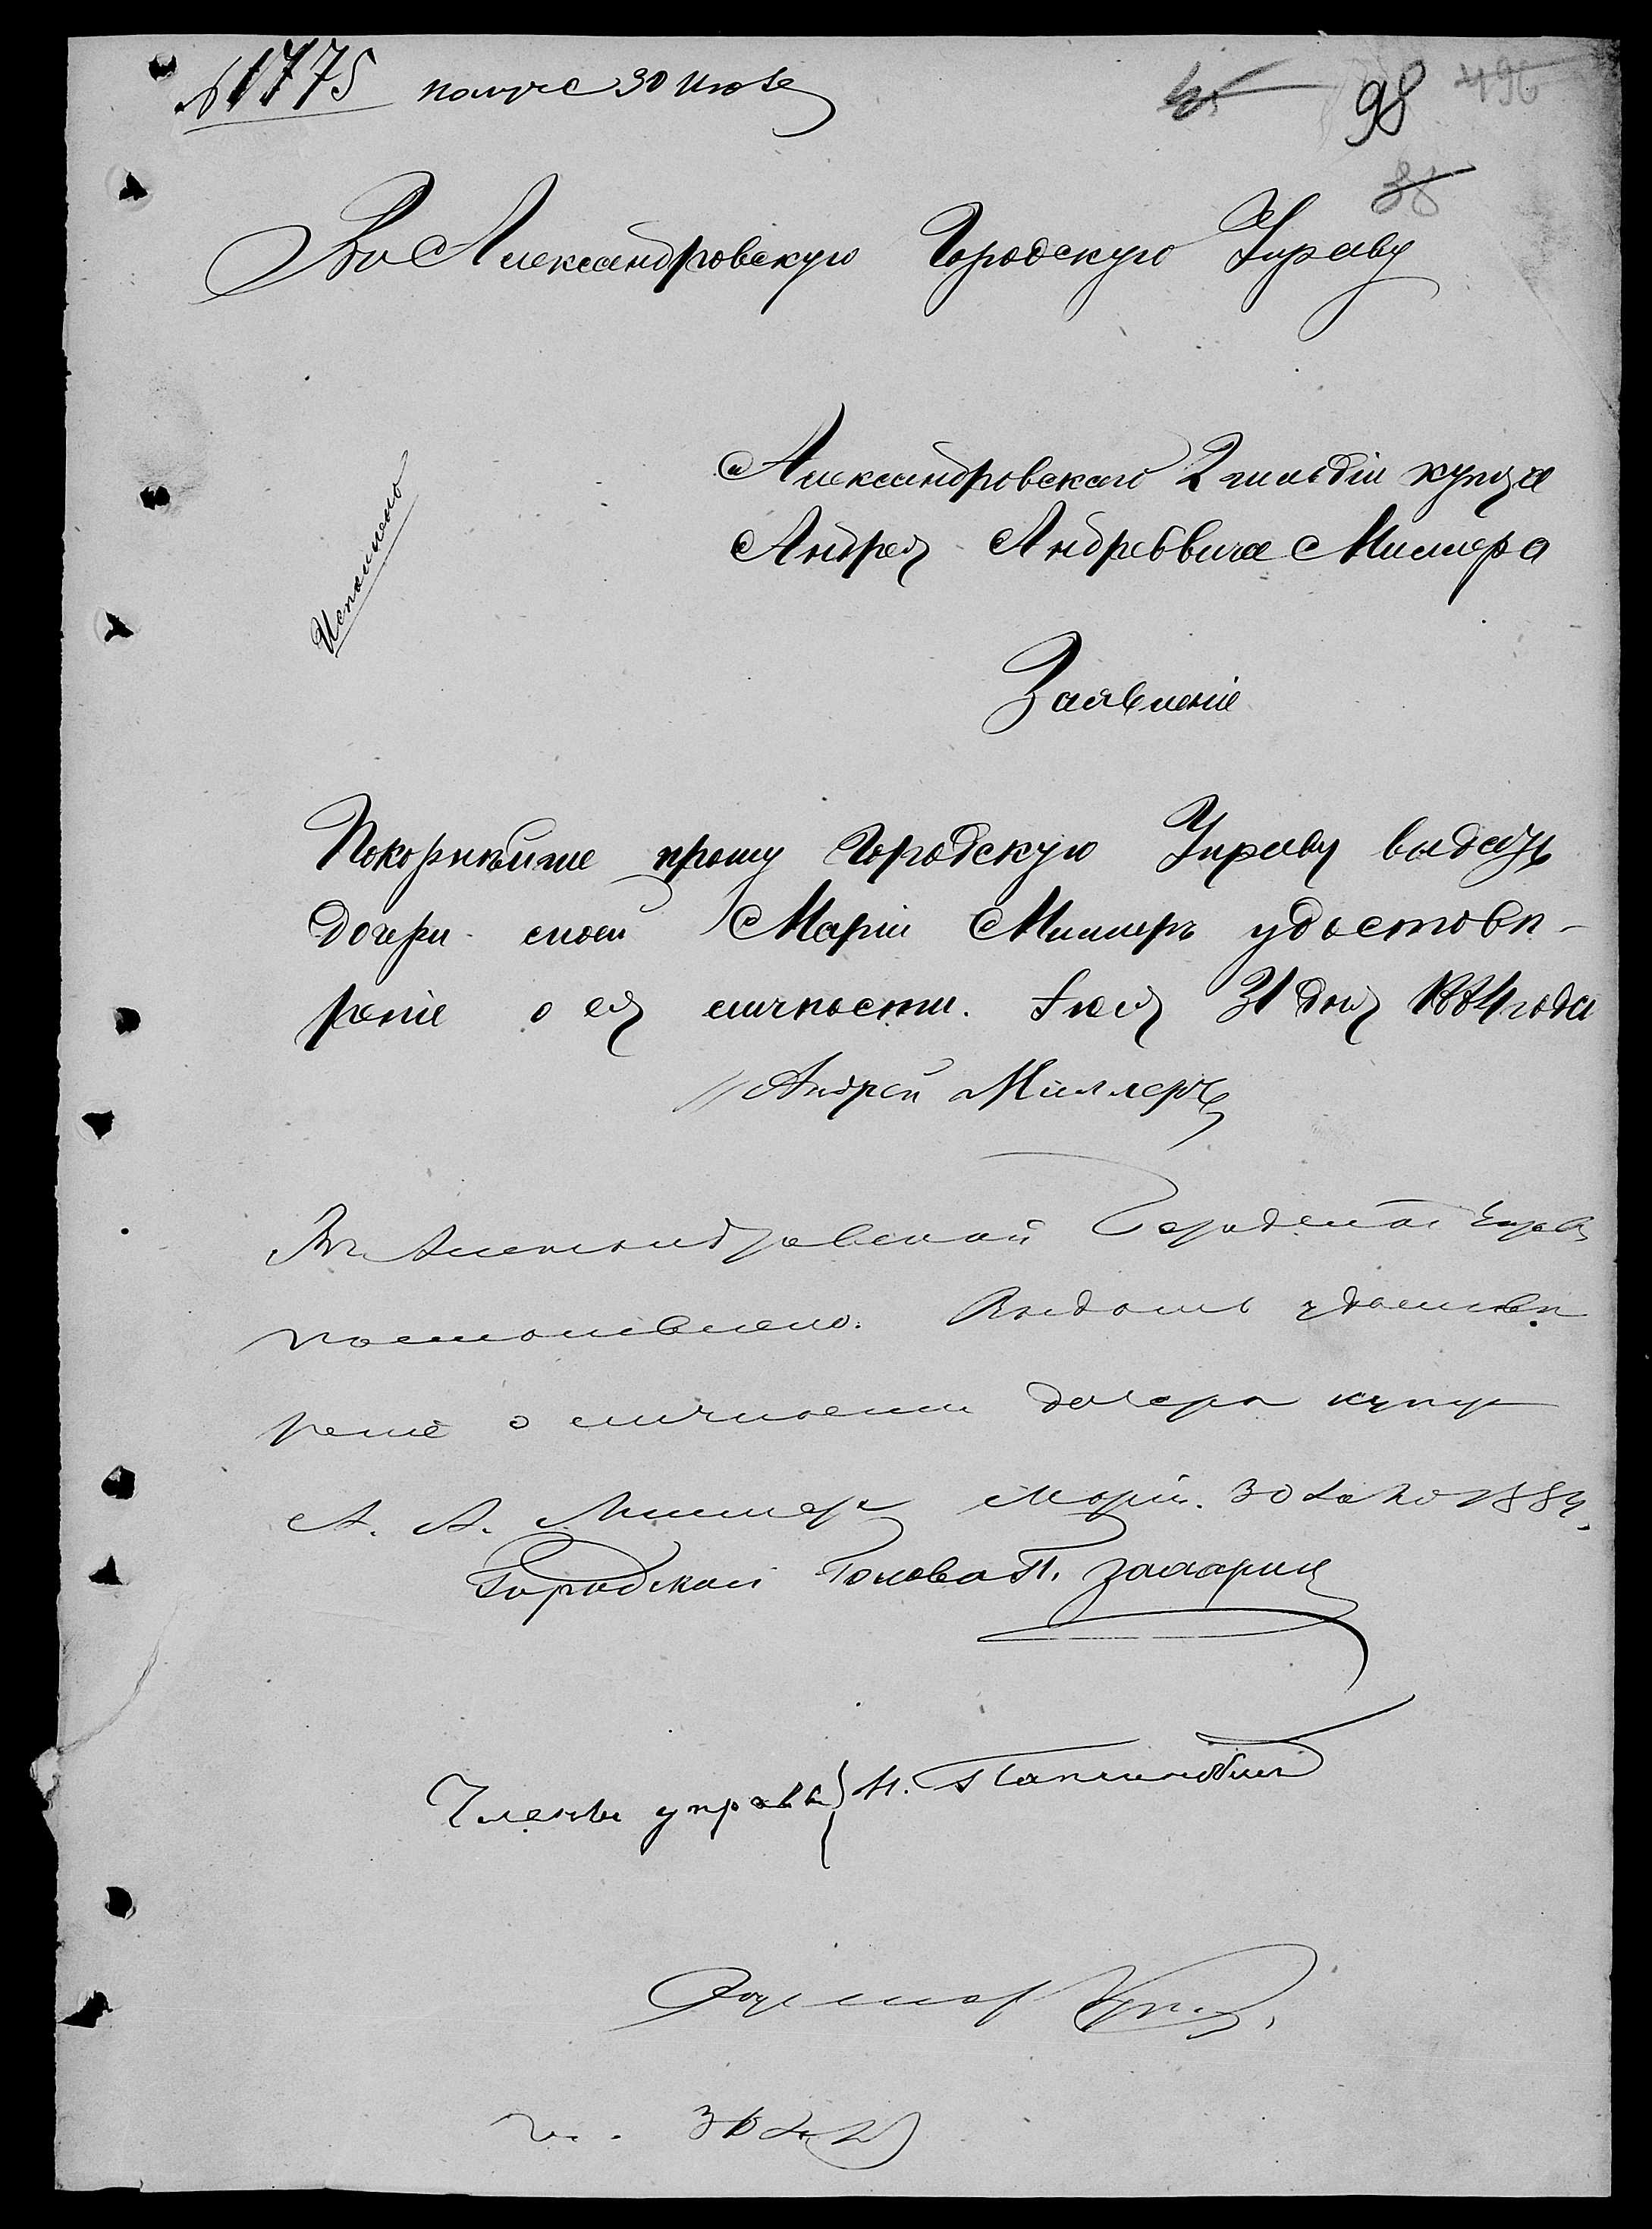 № 1775 получе 30 Июля
98 496
38
Въ Александровскую Городскую Управу
Александровского 2 гильдіи купца
Андрея Андреевича Миллера
Исполнено
Заявленіе
Покорнѣйше прошу Городскую Управу выдать
дочери моей Маріи Миллеръ удостовѣ-
реніе о ея личности. Іюля 31 дня 1884 года
Андрей Миллеръ
Въ Александровской Городской Управѣ
постановлено: Выдать удостовѣ
реніе о личности дочери купца
А. А. Миллера Маріи. 30 Іюля 1884.
Городской Голова П. Захарьин
Члены управы Н.